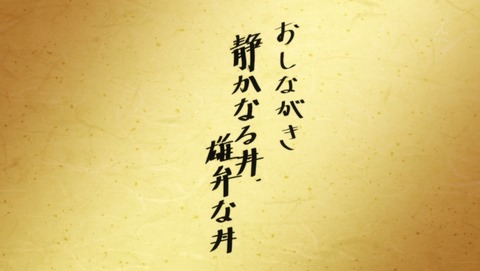 おしながき
静かなる丼、
雄弁な丼